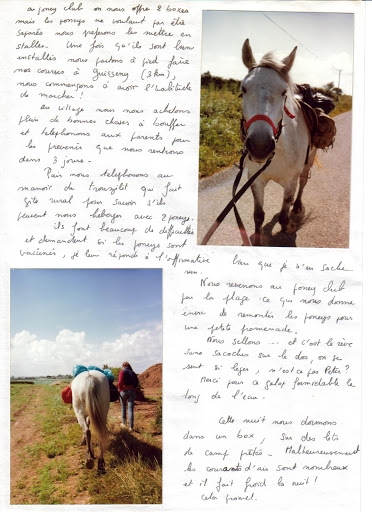 au poney club on nous offre 2 boxes
mais les poneys ne voulant pas être
séparés nous préférons les mettre en
stalles. Une fois qu'ils sont bien
installés nous partons à pied faire
nos courses à Guisseny (3 km),
nous commençons à avoir l'habitude
de marcher !
Au village nous nous achetons
plein de bonnes choses à bouffer
et téléphonons aux parents pour
les prévenir que nous rentrons
dans 3 jours.
Puis nous téléphonons au
manoir de Trouzilit qui fait
gîte rural pour savoir s'ils
peuvent nous héberger avec 2 poneys.
ils font beaucoup de difficultés
et demandent si les poneys sont
vaccinés, je leur réponds à l'affirmative bien que je n'en sache
rien.
Nous revenons au poney club
par la plage ce qui nous donne
envie de remonter les poneys pour
une petite promenade.
Nous sellons ... et c'est le rêve
sans sacoches sur le dos, on se
sent si léger, n'est ce pas Peter ?
Merci pour ce galop formidable le
long de l'eau.
Cette nuit nous dormons
dans un box, sur des lits
de camp prêtés. Malheureusement
les courants d'air sont nombreux
et il fait froid la nuit !
Cela promet.